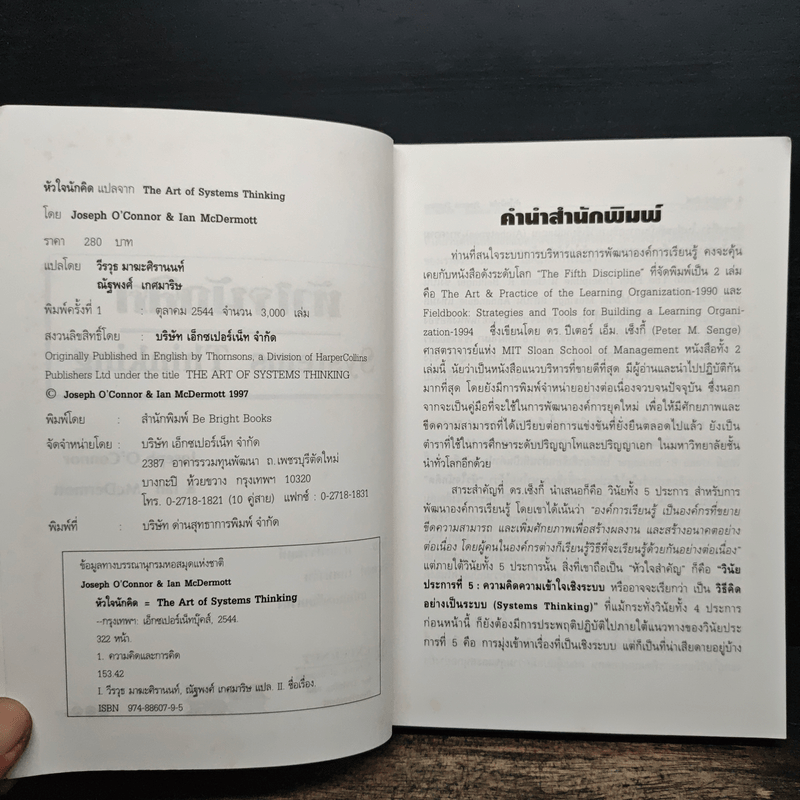 หัวใจนักคิด แปลจาก The Art of Systems Thinking
โดย Joseph O'Connor & Ian McDermott
ราคา 280 บาท
แปลโดย วีรวุธ มาฆะศิรานนท์
ณัฐพงศ์ เกศมาริษ
พิมพ์ครั้งที่ 1 : ตุลาคม 2544 จำนวน 3,000 เล่ม
สงวนลิขสิทธิ์โดย : บริษัท เอ็กซเปอร์เน็ท จำกัด
Originally Published in English by Thornsons, a Division of HarperCollins
Publishers Ltd under the title THE ART OF SYSTEMS THINKING
© Joseph O'Connor & Ian McDermott 1997
พิมพ์โดย : สำนักพิมพ์ Be Bright Books
จัดจำหน่ายโดย : บริษัท เอ็กซเปอร์เน็ท จำกัด
2387 อาคารรวมทุนพัฒนา ถ.เพชรบุรีตัดใหม่
บางกะปิ ห้วยขวาง กรุงเทพฯ 10320
โทร. 0-2718-1821 (10 คู่สาย) แฟกซ์ : 0-2718-1831
พิมพ์ที่ : บริษัท ด่านสุทธาการพิมพ์ จำกัด
ข้อมูลทางบรรณานุกรมหอสมุดแห่งชาติ
Joseph O'Connor & Ian McDermott
หัวใจนักคิด = The Art of Systems Thinking
--กรุงเทพฯ: เอ็กซเปอร์เน็ทบุ๊คส์, 2544.
322 หน้า.
1. ความคิดและการคิด
153.42
I. วีรวุธ มาฆะศิรานนท์, ณัฐพงศ์ เกศมาริษ แปล. II. ชื่อเรื่อง.
ISBN 974-88607-9-5
คำนำสำนักพิมพ์
ท่านที่สนใจระบบการบริหารและการพัฒนาองค์การเรียนรู้ คงจะคุ้น
เคยกับหนังสือดังระดับโลก "The Fifth Discipline" ที่จัดพิมพ์เป็น 2 เล่ม
คือ The Art & Practice of the Learning Organization-1990 และ
Fieldbook: Strategies and Tools for Building a Learning Organi-
zation-1994 ซึ่งเขียนโดย ดร.ปีเตอร์ เอ็ม. เซ็งกี้ (Peter M. Senge)
ศาสตราจารย์แห่ง MIT Sloan School of Management หนังสือทั้ง 2
เล่มนี้ นับว่าเป็นหนังสือแนวบริหารที่ขายดีที่สุด มีผู้อ่านและนำไปปฏิบัติกัน
มากที่สุด โดยยังมีการพิมพ์จำหน่ายอย่างต่อเนื่องจวบจนปัจจุบัน ซึ่งนอก
จากจะเป็นคู่มือที่จะใช้ในการพัฒนาองค์การยุคใหม่ เพื่อให้มีศักยภาพและ
ขีดความสามารถที่ได้เปรียบต่อการแข่งขันที่ยั่งยืนตลอดไปแล้ว ยังเป็น
ตำราที่ใช้ในการศึกษาระดับปริญญาโทและปริญญาเอก ในมหาวิทยาลัยชั้น
นำทั่วโลกอีกด้วย
สาระสำคัญที่ ดร.เซ็งกี้ นำเสนอก็คือ วินัยทั้ง 5 ประการ สำหรับการ
พัฒนาองค์การเรียนรู้ โดยเขาได้เน้นว่า "องค์การเรียนรู้ เป็นองค์กรที่ขยาย
ขีดความสามารถ และเพิ่มศักยภาพเพื่อสร้างผลงาน และสร้างอนาคตอย่าง
ต่อเนื่อง โดยผู้คนในองค์กรต่างก็เรียนรู้วิธีที่จะเรียนรู้ด้วยกันอย่างต่อเนื่อง"
แต่ภายใต้วินัยทั้ง 5 ประการนั้น สิ่งที่เขาถือเป็น "หัวใจสำคัญ" ก็คือ "วินัย
ประการที่ 5 : ความคิดความเข้าใจเชิงระบบ หรืออาจจะเรียกว่า เป็น วิธีคิด
อย่างเป็นระบบ (Systems Thinking)" ที่แม้กระทั่งวินัยทั้ง 4 ประการ
ก่อนหน้านี้ ก็ยังต้องมีการประพฤติปฏิบัติไปภายใต้แนวทางของวินัยประ
การที่ 5 คือ การมุ่งเข้าหาเรื่องที่เป็นเชิงระบบ แต่ก็เป็นที่น่าเสียดายอยู่บ้าง